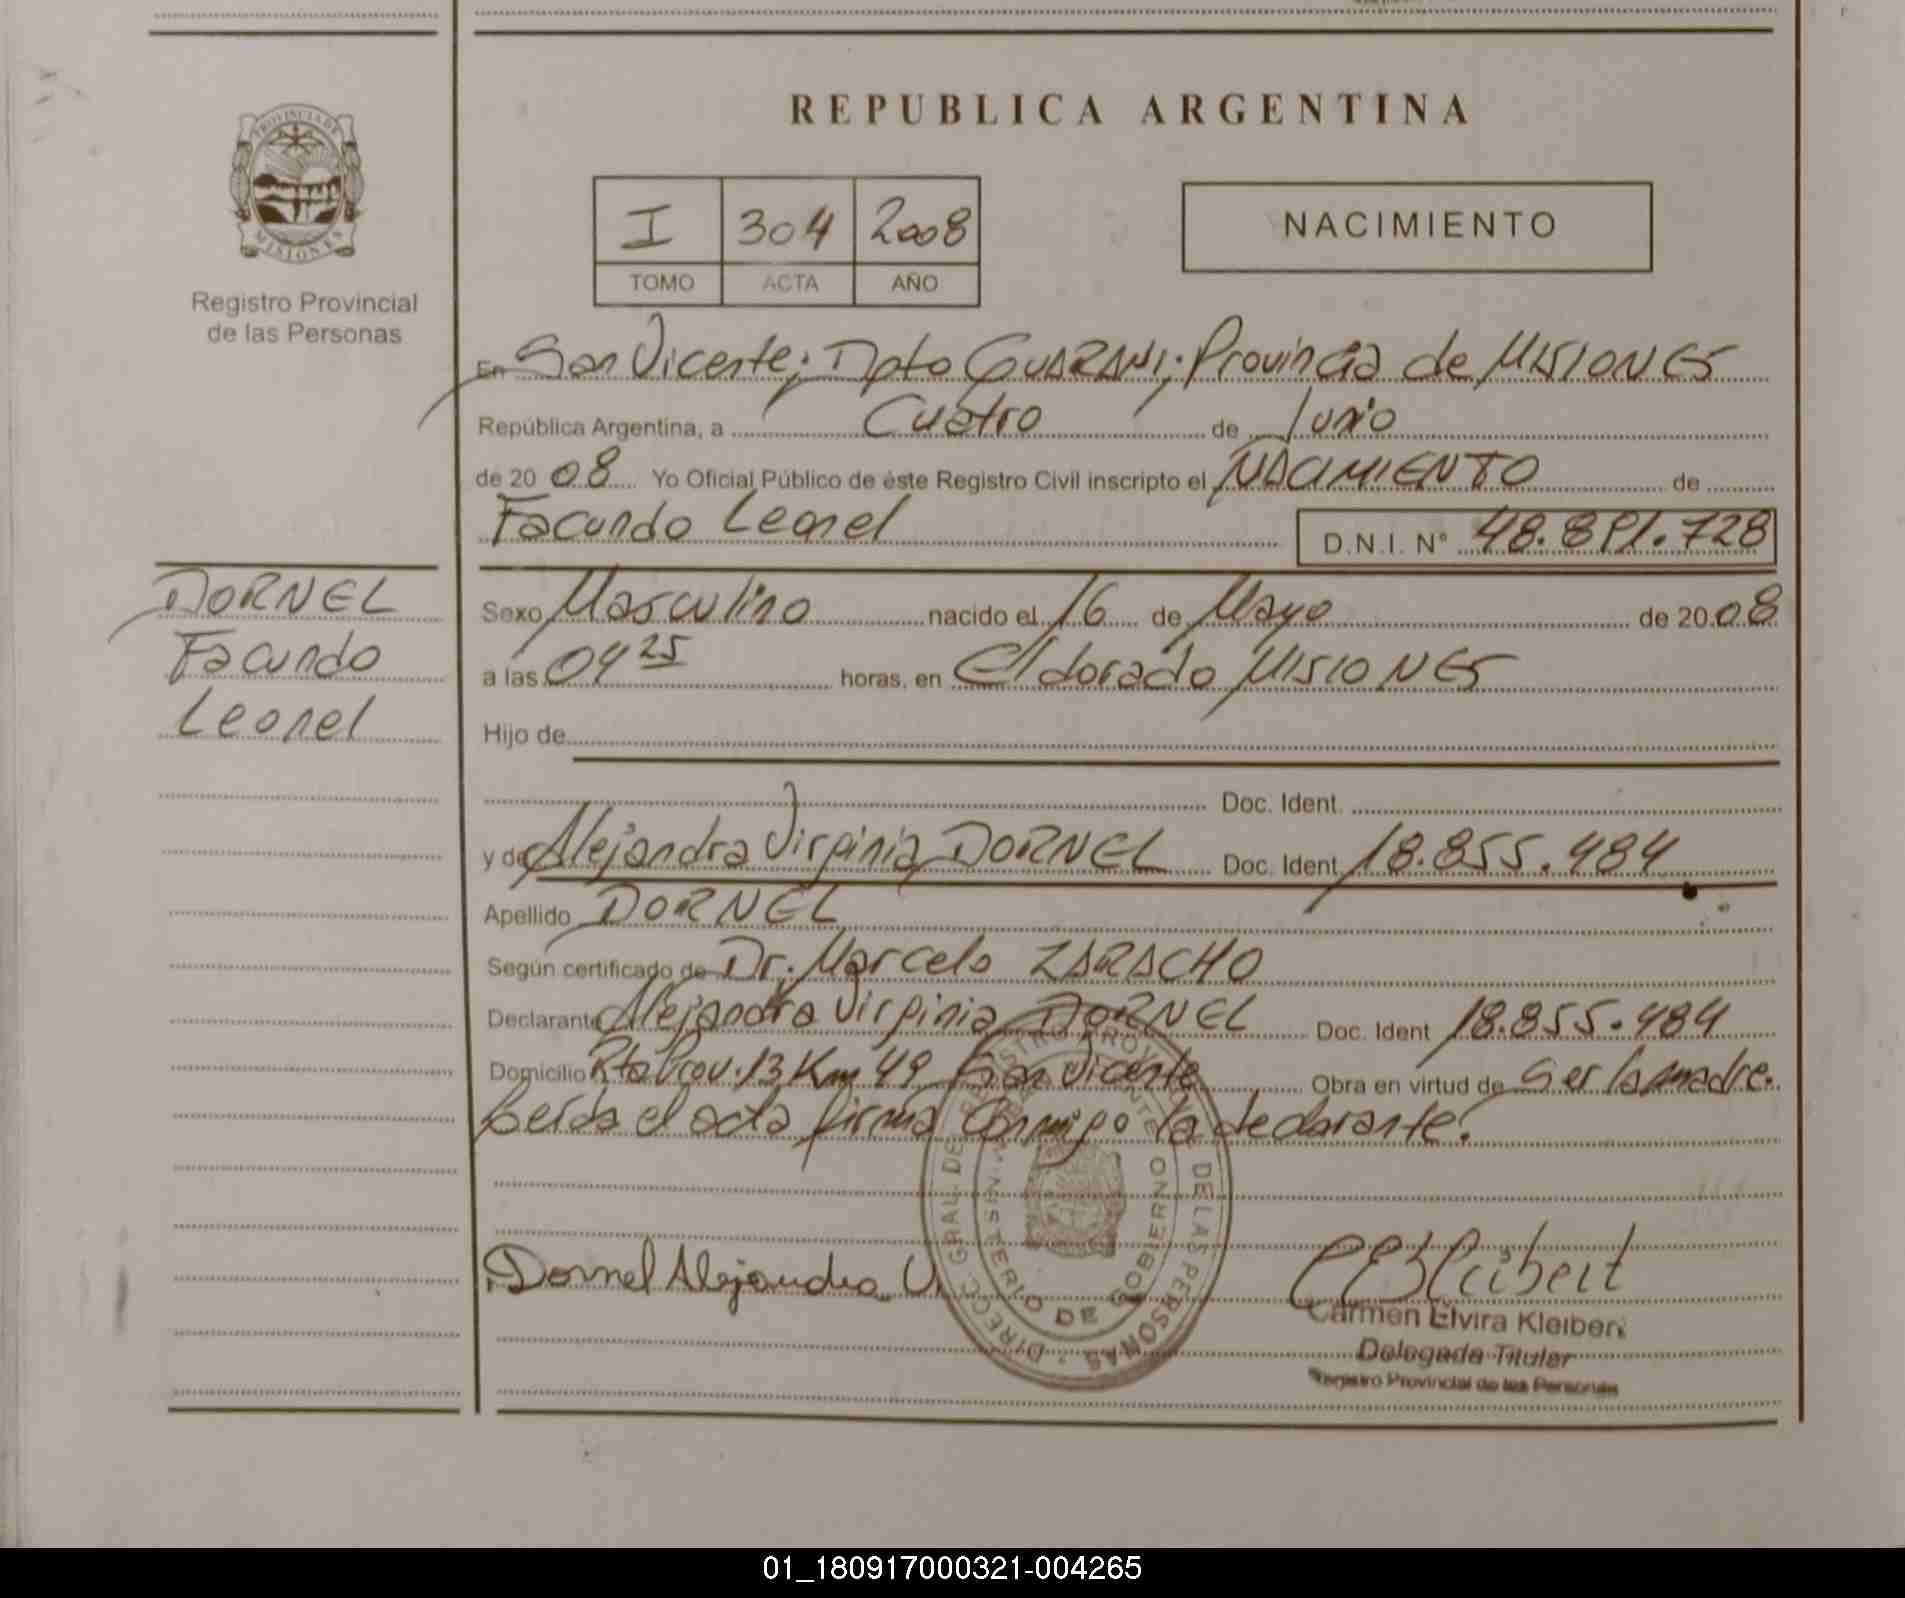 REPUBLICA ARGENTINA
PROVINCIA DE MISIONES
Registro Provincial
de las Personas
I 304 2008
TOMO ACTA AÑO
NACIMIENTO
En San Vicente; Dpto GUARANI; Provincia de MISIONES
República Argentina, a Cuatro de Junio
de 20 08 Yo Oficial Público de éste Registro Civil inscripto el NACIMIENTO de
Facundo Leonel D.N.I. N° 48.891.728
DORNEL
Facundo
Leonel
Sexo Masculino nacido el 16 de Mayo de 20 08
a las 04 25 horas, en Eldorado MISIONES
Hijo de
Doc. Ident.
y de Alejandra Virginia DORNEL Doc. Ident. 18.855.484
Apellido DORNEL
Según certificado de Dr. Marcelo ZARACHO
Declarante Alejandra Virginia DORNEL Doc. Ident 18.855.484
Domicilio Rta Prov. 13 Km 49 San Vicente Obra en virtud de Ser la madre.
Leída el acta firma Conmigo la declarante.
DIRECC. GRAL. DE REGISTRO PROVINCIAL DE LAS PERSONAS
MINISTERIO DE GOBIERNO
Dornel Alejandra V.
Carmen Elvira Kleibert
Delegada Titular
Registro Provincial de las Personas
01_180917000321-004265